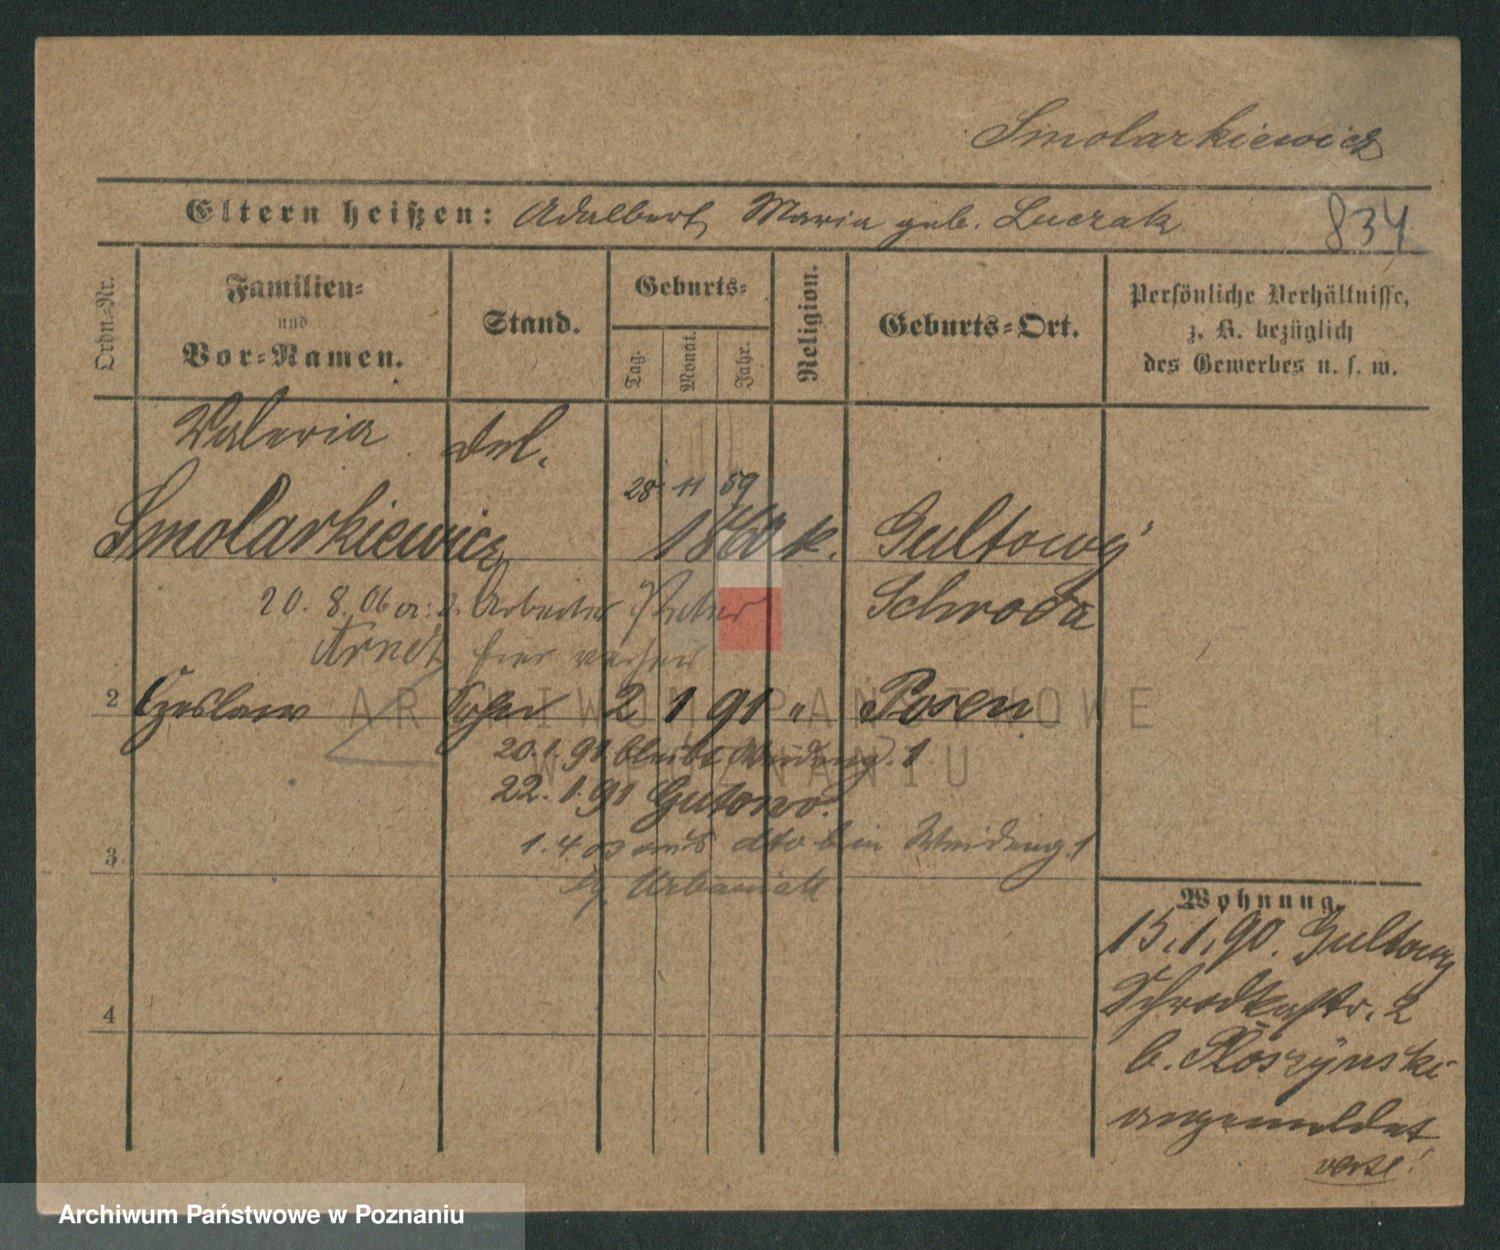 Smolarkiewicz
Eltern heißen: Adalbert, Maria geb. Luczak
834
Ordn.-Nr.
Familien-
und
Vor-Namen.
Stand.
Geburts-
Tag.
Monat.
Jahr.
Religion.
Geburts-Ort.
Persönliche Verhältnisse,
z. B. bezüglich
des Gewerbes u. s. w.
Valeria
28 11 59
Smolarkiewicz 1860 k. Gultowy
20. 8. 06 Arbeiter Peter Schroda
Arndt
2 Czeslaw Sohn 2 1 91 " Posen
20.1.91 bleibt 1
22. 1. 91 Gutowo.
3
1. 4. 03 aus dto 1
Urbaniak
4
Wohnung.
15.1.90. Gultowy
Schrodkastr. 2
b.
angemeldet
ARCHIWUM PAŃSTWOWE
W POZNANIU
Archiwum Państwowe w Poznaniu